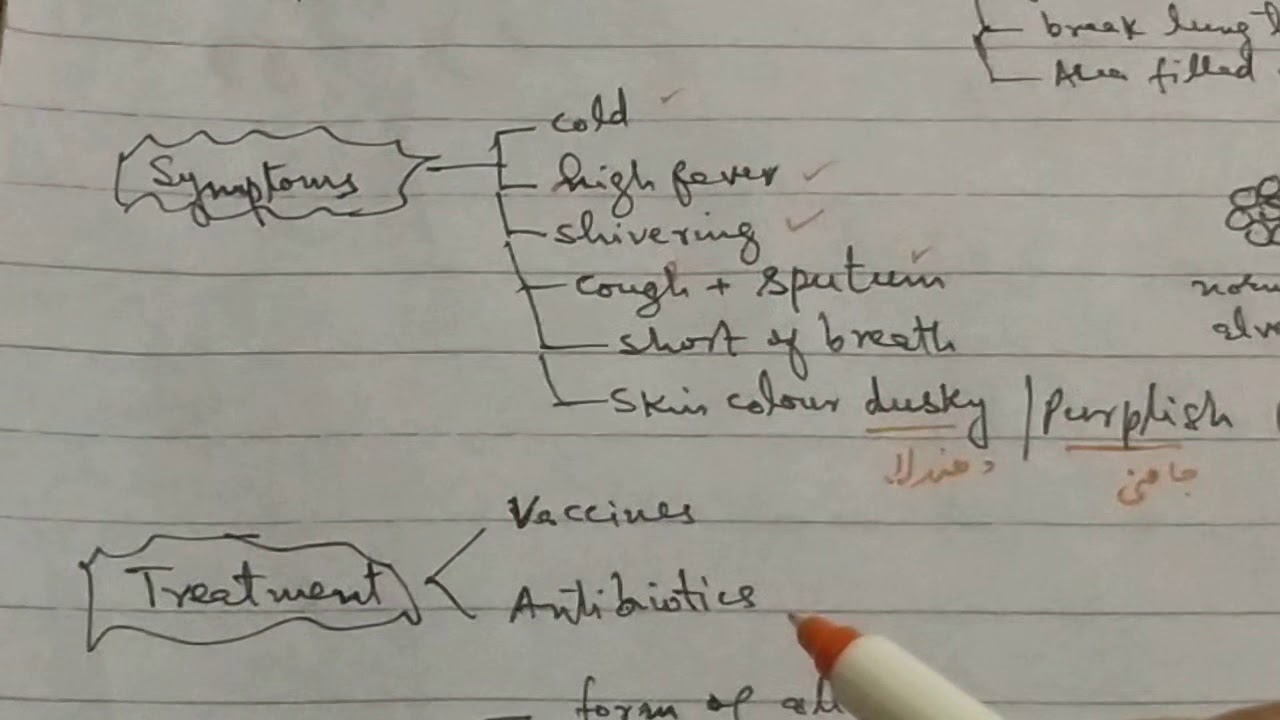 break lung
filled
cold
Symptoms
high fever
shivering
cough + sputum
short of breath
skin colour dusky / Purplish
دھندلا جامنی
Vaccines
Treatment
Antibiotics
form of